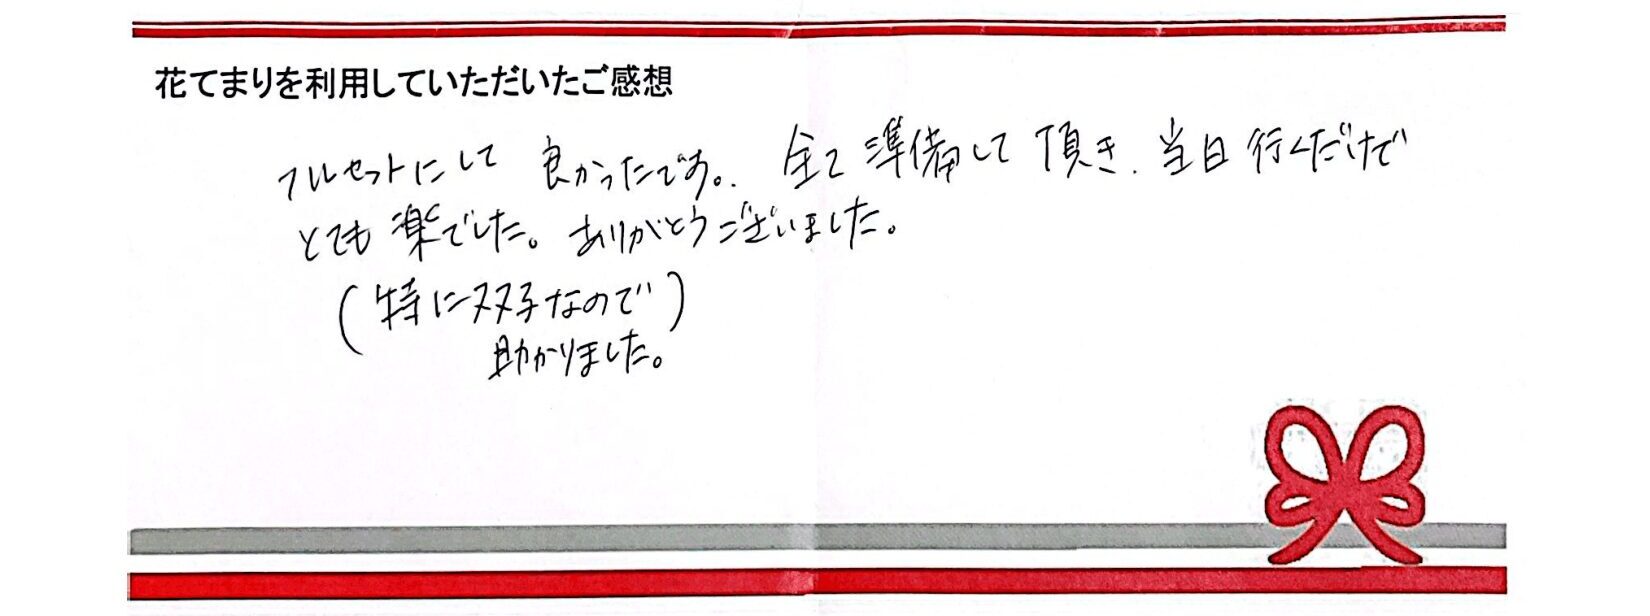 花てまりを利用していただいたご感想
フルセットにして 良かったです。全て準備して頂き、当日行くだけで
とても楽でした。ありがとうございました。
(特に双子なので)
助かりました。